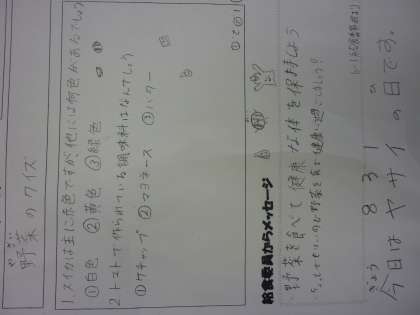 やさい
野菜のクイズ
1.スイカは主に赤色ですが、他には何色があるでしょう
①白色 ②黄色 ③緑色
2トマトで作られている調味料はなんでしょう
①ケチャップ ②マヨネーズ ③バター
給食委員からメッセージ
野菜を食べて健康な体を保持しよう
きょう 8 3 1 の
今日はヤサイの日です。